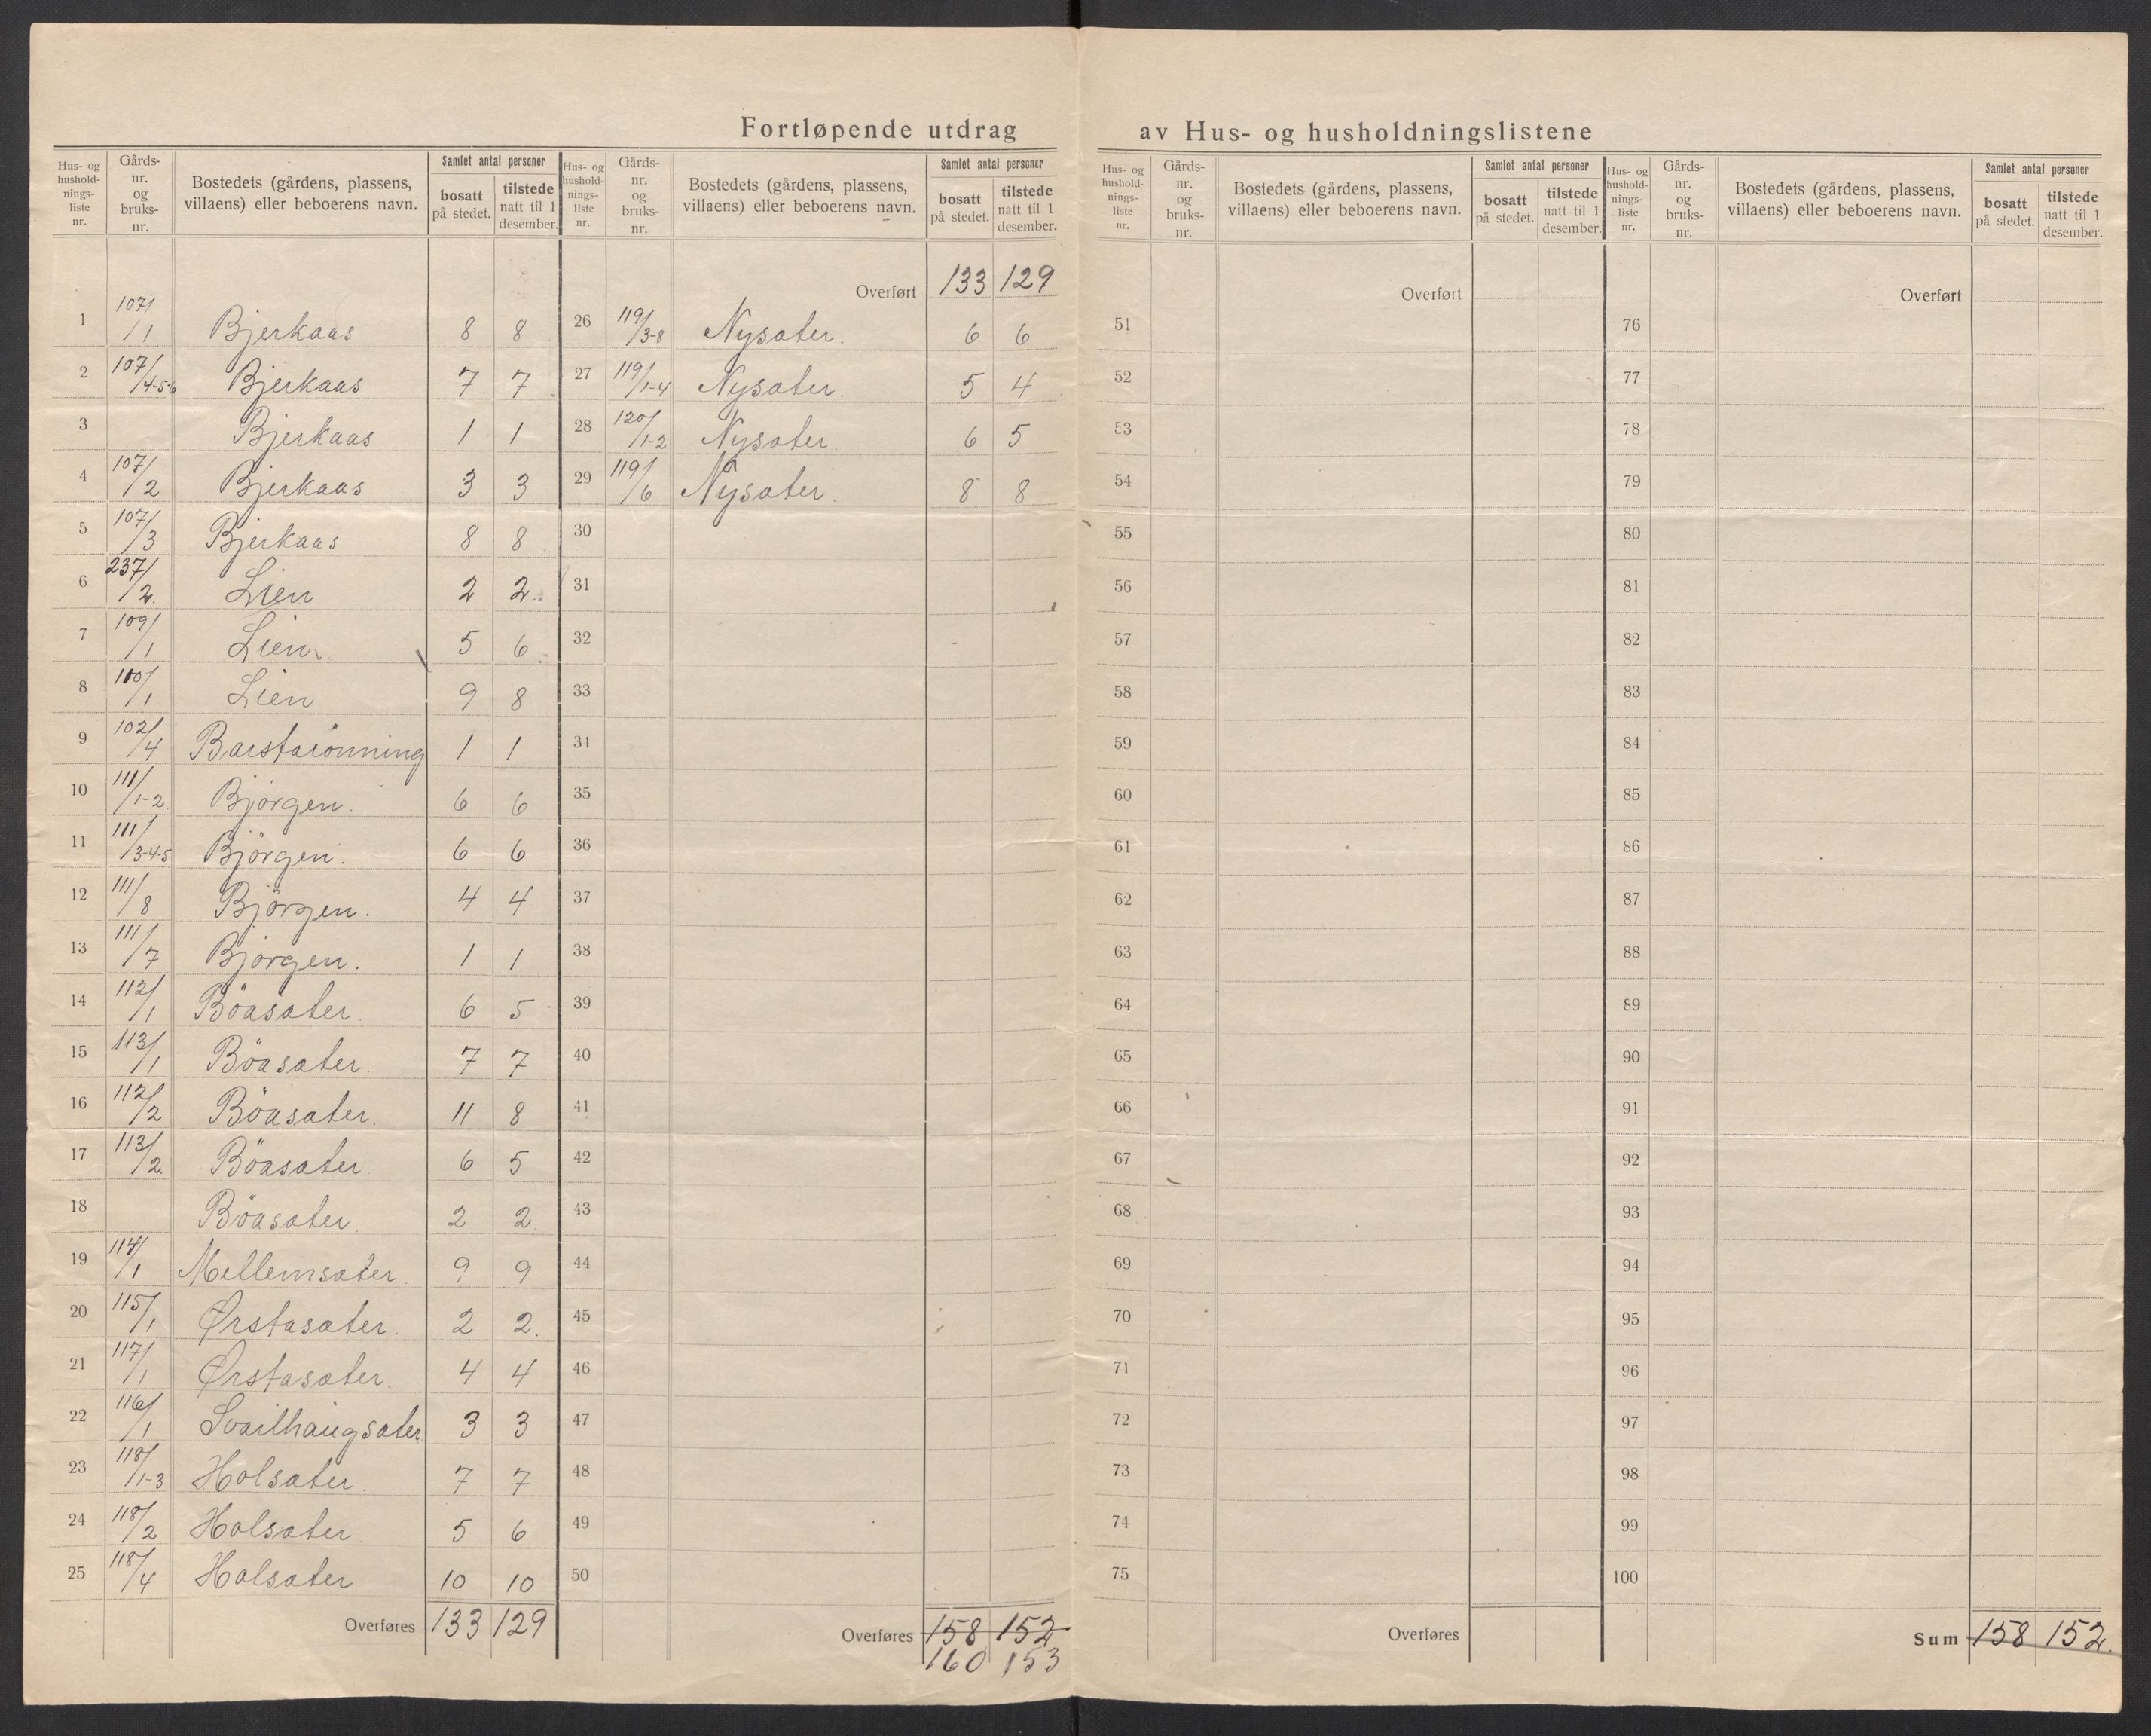 Fortløpende utdrag av Hus- og husholdningslistene
Hus- og husholdningsliste nr. | Gårdsnr. og bruksnr. | Bostedets (gårdens, plassens, villaens) eller beboerens navn. | Samlet antal personer | bosatt på stedet. | tilstede natt til 1 desember.
1 107/1 Bjerkaas 8 8
2 107/4-5-6 Bjerkaas 7 7
3 Bjerkaas 1 1
4 107/2 Bjerkaas 3 3
5 107/3 Bjerkaas 8 8
6 237/2. Lien 2 2.
7 109/1 Lien 5 6
8 100/1 Lien 9 8
9 102/4 Barstarönning 1 1
10 111/1-2. Björgen. 6 6
11 111/3-4-5 Björgen. 6 6
12 111/8 Björgen. 4 4
13 111/7 Björgen. 1 1
14 112/1 Böasæter. 6 5
15 113/1 Böasæter. 7 7
16 112/2 Böasæter. 11 8
17 113/2 Böasæter. 6 5
18 Böasæter. 2 2
19 114/1 Mellemsæter. 9 9
20 115/1 Ørstasæter. 2 2.
21 117/1 Ørstasæter. 4 4
22 116/1 Svailhaugsæter 3 3
23 118/1-3 Holsæter. 7 7
24 118/2 Holsæter. 5 6
25 118/4 Holsæter 10 10
Overføres 133 129
Hus- og husholdningsliste nr. | Gårdsnr. og bruksnr. | Bostedets (gårdens, plassens, villaens) eller beboerens navn. | Samlet antal personer | bosatt på stedet. | tilstede natt til 1 desember.
Overført 133 129
26 119/3-8 Nysæter. 6 6
27 119/1-4 Nysæter. 5 4
28 120/1-2 Nysæter 6 5
29 119/6 Nysæter. 8 8
30
31
32
33
34
35
36
37
38
39
40
41
42
43
44
45
46
47
48
49
50
Overføres 158 152
160 153
Hus- og husholdningsliste nr. | Gårdsnr. og bruksnr. | Bostedets (gårdens, plassens, villaens) eller beboerens navn. | Samlet antal personer | bosatt på stedet. | tilstede natt til 1 desember.
Overført
51
52
53
54
55
56
57
58
59
60
61
62
63
64
65
66
67
68
69
70
71
72
73
74
75
Overføres
Hus- og husholdningsliste nr. | Gårdsnr. og bruksnr. | Bostedets (gårdens, plassens, villaens) eller beboerens navn. | Samlet antal personer | bosatt på stedet. | tilstede natt til 1 desember.
Overført
76
77
78
79
80
81
82
83
84
85
86
87
88
89
90
91
92
93
94
95
96
97
98
99
100
Sum 158 152.